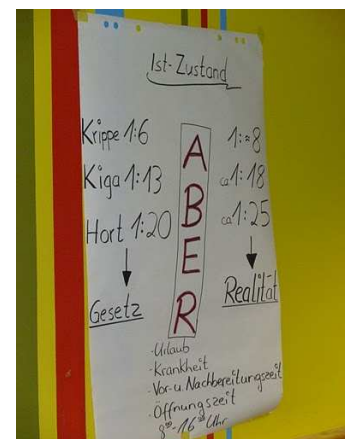 Ist-Zustand
Krippe 1:6
Kiga 1:13
Hort 1:20
Gesetz
ABER
1:≈8
ca 1:18
ca 1:25
Realität
- Urlaub
- Krankheit
- Vor- u. Nachbereitungszeit
- Öffnungszeit
8°°-16°° Uhr